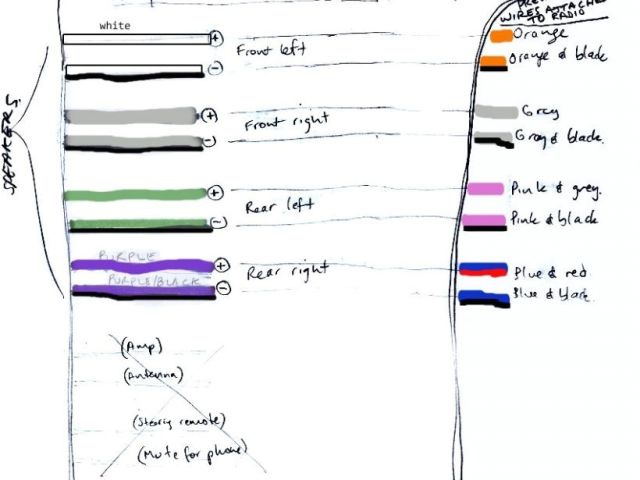 WIRES ATTACHED
TO RADIO
white
SPEAKERS
+
Front left
Orange
-
Orange & black
+
Front right
Grey
-
Gray & black.
+
Rear left
Pink & grey.
-
Pink & black
PURPLE
+
Rear right
Blue & red
PURPLE/BLACK
-
Blue & black.
(Amp)
(Antenna)
(Steerig remote)
(Mute for phone)